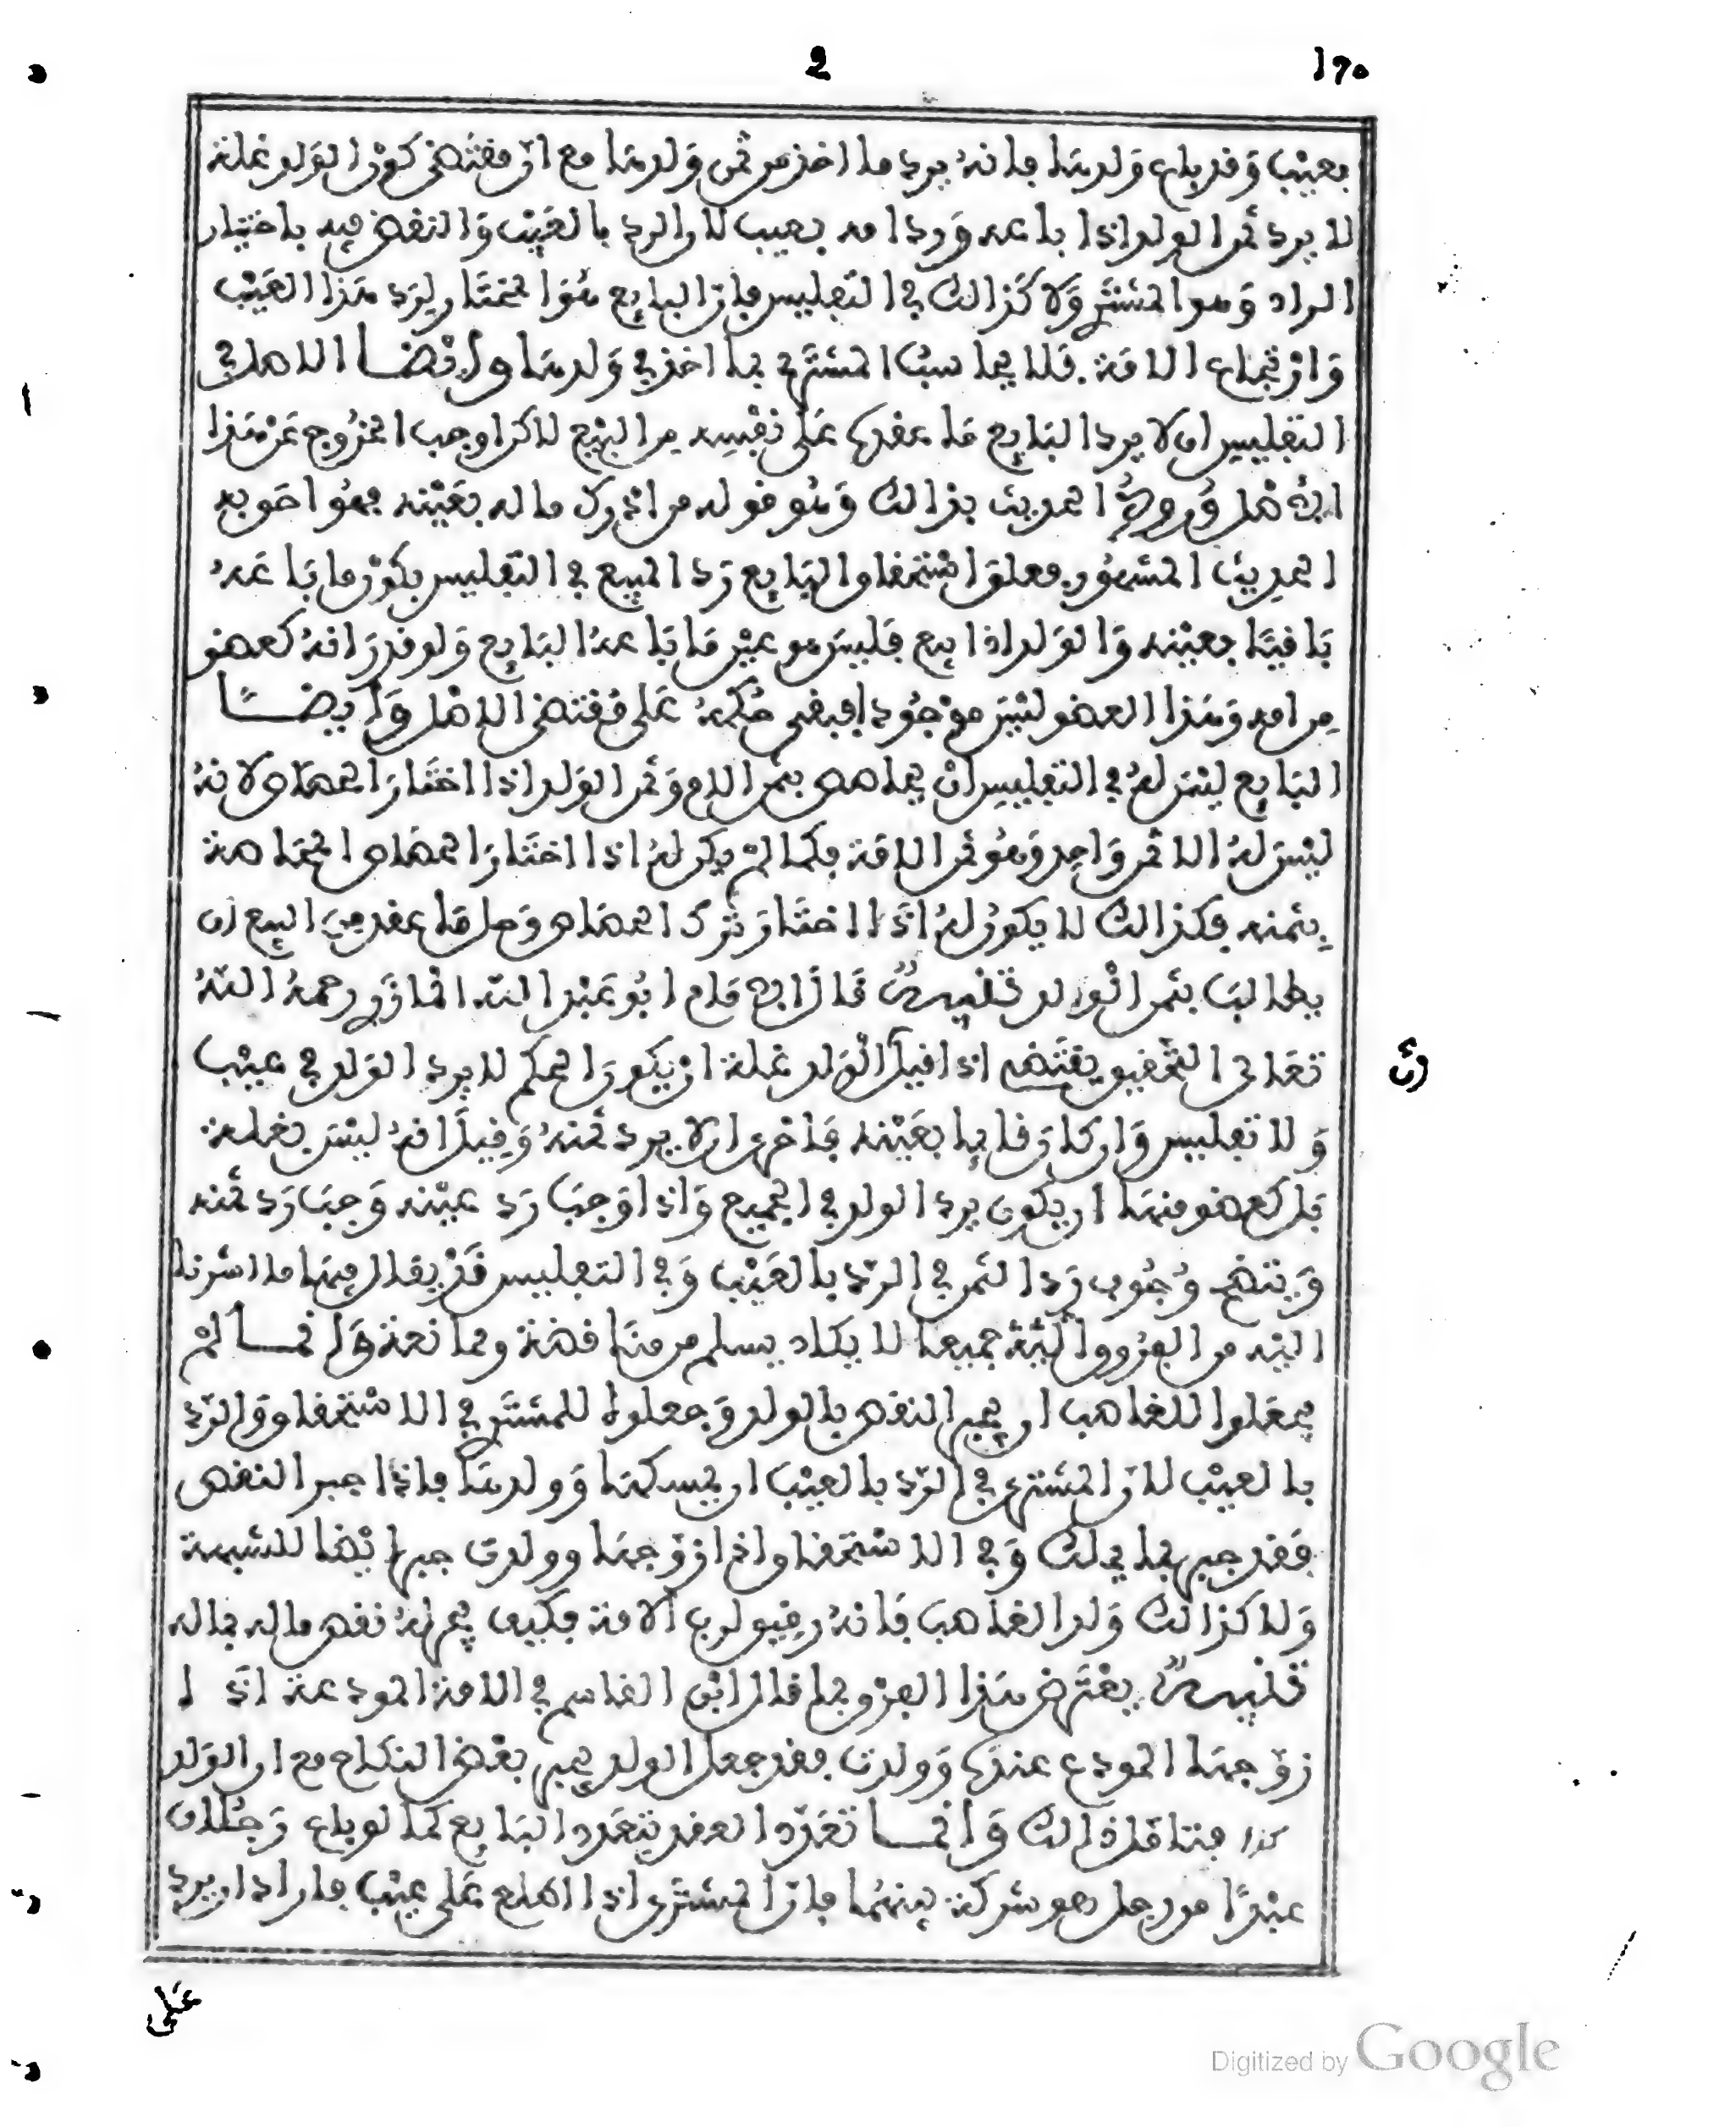 2 170
بعيب وقد باع ولدها فإنه يرد ما أخذ من ثمن ولدها مع أن مقتضى كون الولد غلة
لا يرد ثمن الولد إذا باعه ورد أمه بعيب لأن الرد بالعيب والنقض فيه باختيار
الراد وهو المشتري ولا كذالك في التفليس فإن البايع هو المختار لرد هذا العيب
وارتجاع الأمة. فلا يحاسب المشتري بما أخذ في ولدها وأيضا الأصل في
التفليس أن لا يرد البايع ما عقده على نفسه من البيع لاكن أوجب الخروج عن هذا
الأصل ورود الحديث بذالك وهو قوله من أدرك ماله بعينه فهو أحق به
الحديث المشهور. فعلق استحقاق البايع رد المبيع في التفليس بكون ما باعه
باقيا بعينه والولد إذا بيع فليس هو عين ما باعه البايع ولو قدر أنه كعضو
من أمه وهذا العضو ليس موجودا فبقي حكمه على مقتضى الأصل وأيضا
البايع ليس له في التفليس أن يحاصص بثمن الأم وثمن الولد إذا اختار الحصاص لأنه
ليس له إلا ثمن واحد وهو ثمن الأمة فكما لم يكن له إذا اختار الحصاص المحاصة
بثمنه فكذالك لا يكون له إذا اختار ترك الحصاص وحل ما عقد من البيع أن
يطالب بثمن الولد تنبيه قال الإمام أبو عبد الله المازري رحمه الله
تعالى التحقيق يقتضي إذا قيل الولد غلة أن يكون الحكم لا يرد الولد في عيب
ولا تفليس وإن كان قايما بعينه فأحرى أن لا يرد ثمنه وقيل أنه ليس بغلة
بل كعضو منها أن يكون يرد الولد في الجميع وإذا وجب رد عينه وجب رد ثمنه
ويتضح وجوب رد الثمن في الرد بالعيب وفي التفليس قد يقال فيها ما اشرنا
اليه من الفروق الثلثة جميعها لا يكاد يسلم من مناقضة وممانعة وإنما لم
يجعلوا للغاصب أن يجبر النقص بالولد وجعلوا للمشتري في الاستحقاق والرد
بالعيب لأن المشتري في الرد بالعيب أن يمسكها وولدها فإذا جبر النقص
فقد جبر بما يملك وفي الاستحقاق إذا زوجها وولدت جبر أيضا للشبهة
ولا كذالك ولد الغاصب فإنه رقيق لرب الأمة فكيف يجبر له نقص ماله بماله
تنبيه يعترض هذا الفرق بما قال ابن القاسم في الأمة المودعة إذا
زوجها المودع عنده وولدت. فقد جعل الولد يجبر بعض النكاح مع أن الولد
كذا فتأمل ذالك وإنما تعدد العقد بتعدد البايع كما لو باع رجلان
عبدا من رجل هو شركة بينهما فإن المشتري إذا اطلع على عيب فأراد أن يرد
على